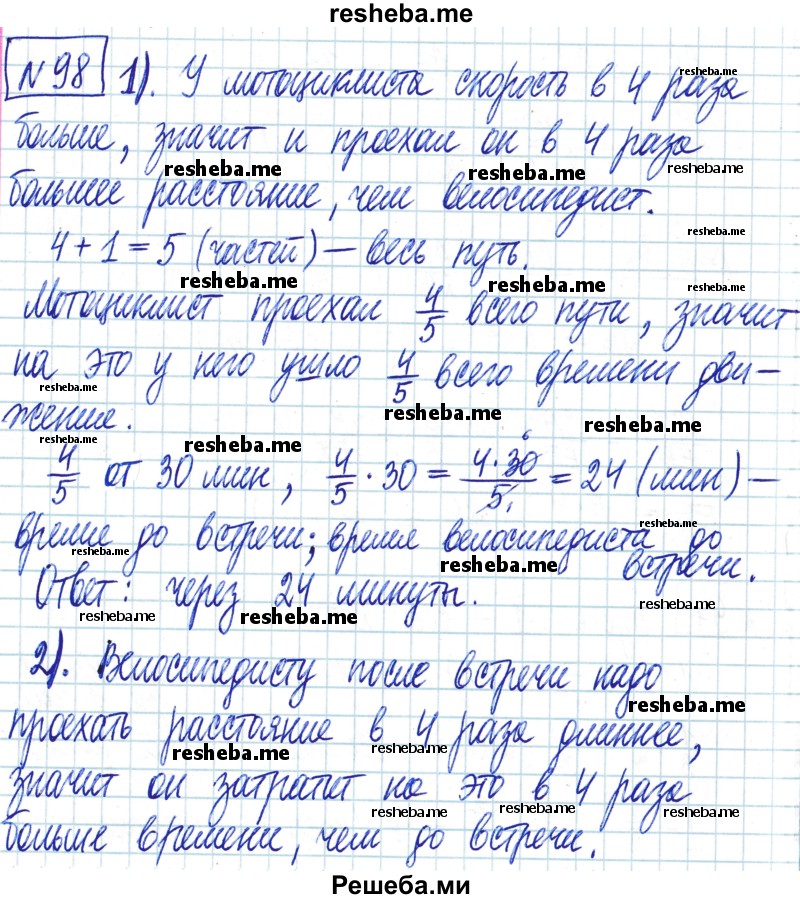 resheba.me
№98 1). У мотоциклиста скорость в 4 раза
resheba.me
больше, значит и проехал он в 4 раза
resheba.me resheba.me
большее расстояние, чем велосипедист.
resheba.me
4 + 1 = 5 (частей) — весь путь.
resheba.me resheba.me
Мотоциклист проехал 4/5 всего пути, значит
на это у него ушло 4/5 всего времени дви-
resheba.me resheba.me
жение.
resheba.me resheba.me resheba.me
4/5 от 30 мин, 4/5 · 30 = 4 · 30 6 / 5 1 = 24 (мин) —
resheba.me
время до встречи; время велосипедиста до
resheba.me resheba.me
встречи.
Ответ: через 24 минуты.
resheba.me resheba.me resheba.me
2). Велосипедисту после встречи надо
resheba.me
проехать расстояние в 4 раза длиннее,
resheba.me resheba.me
значит он затратит на это в 4 раза
resheba.me resheba.me
больше времени, чем до встречи.
resheba.me resheba.me
Решеба.ми